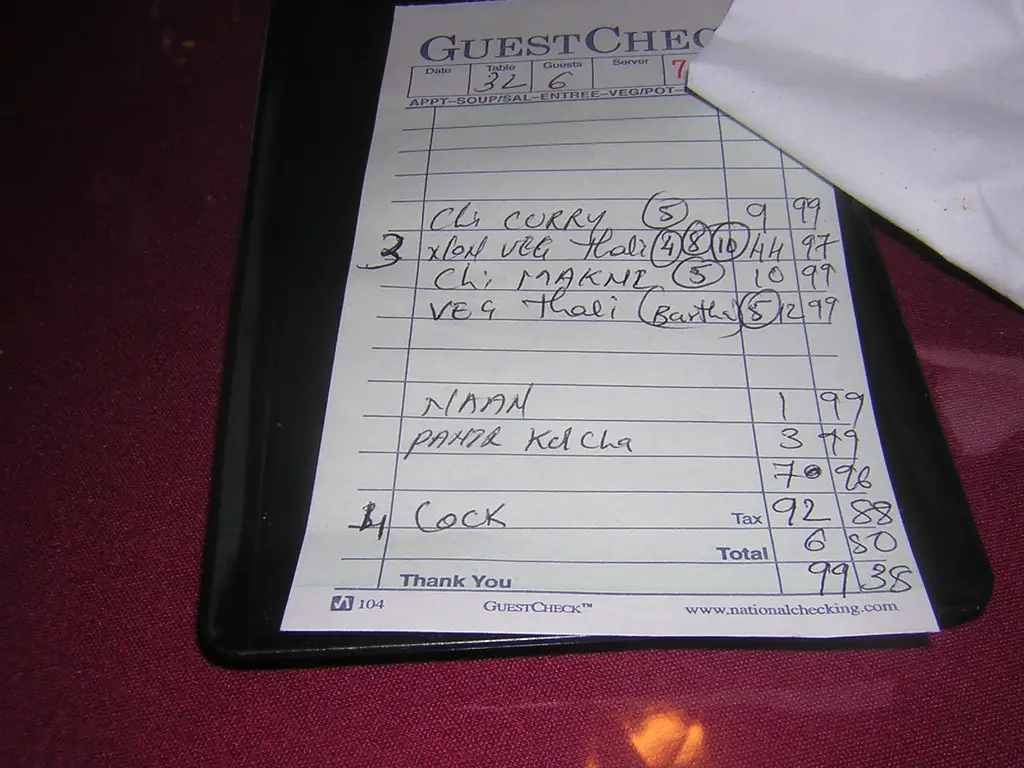 GUESTCHEC
Date Table Guests Server 7
32 6
APPT–SOUP/SAL–ENTREE–VEG/POT–
Chi CURRY (5) 9 99
3 VEG Thali (4) (8) (10) 44 97
Chi MAKNI (5) 10 99
VEG Thali (Bartha) (5) 12 99
NAAN 1 99
PANIR KulCha 3 99
7 96
4 COCK Tax 92 88
Total 6 50
Thank You 99 38
104 GUESTCHECK™ www.nationalchecking.com